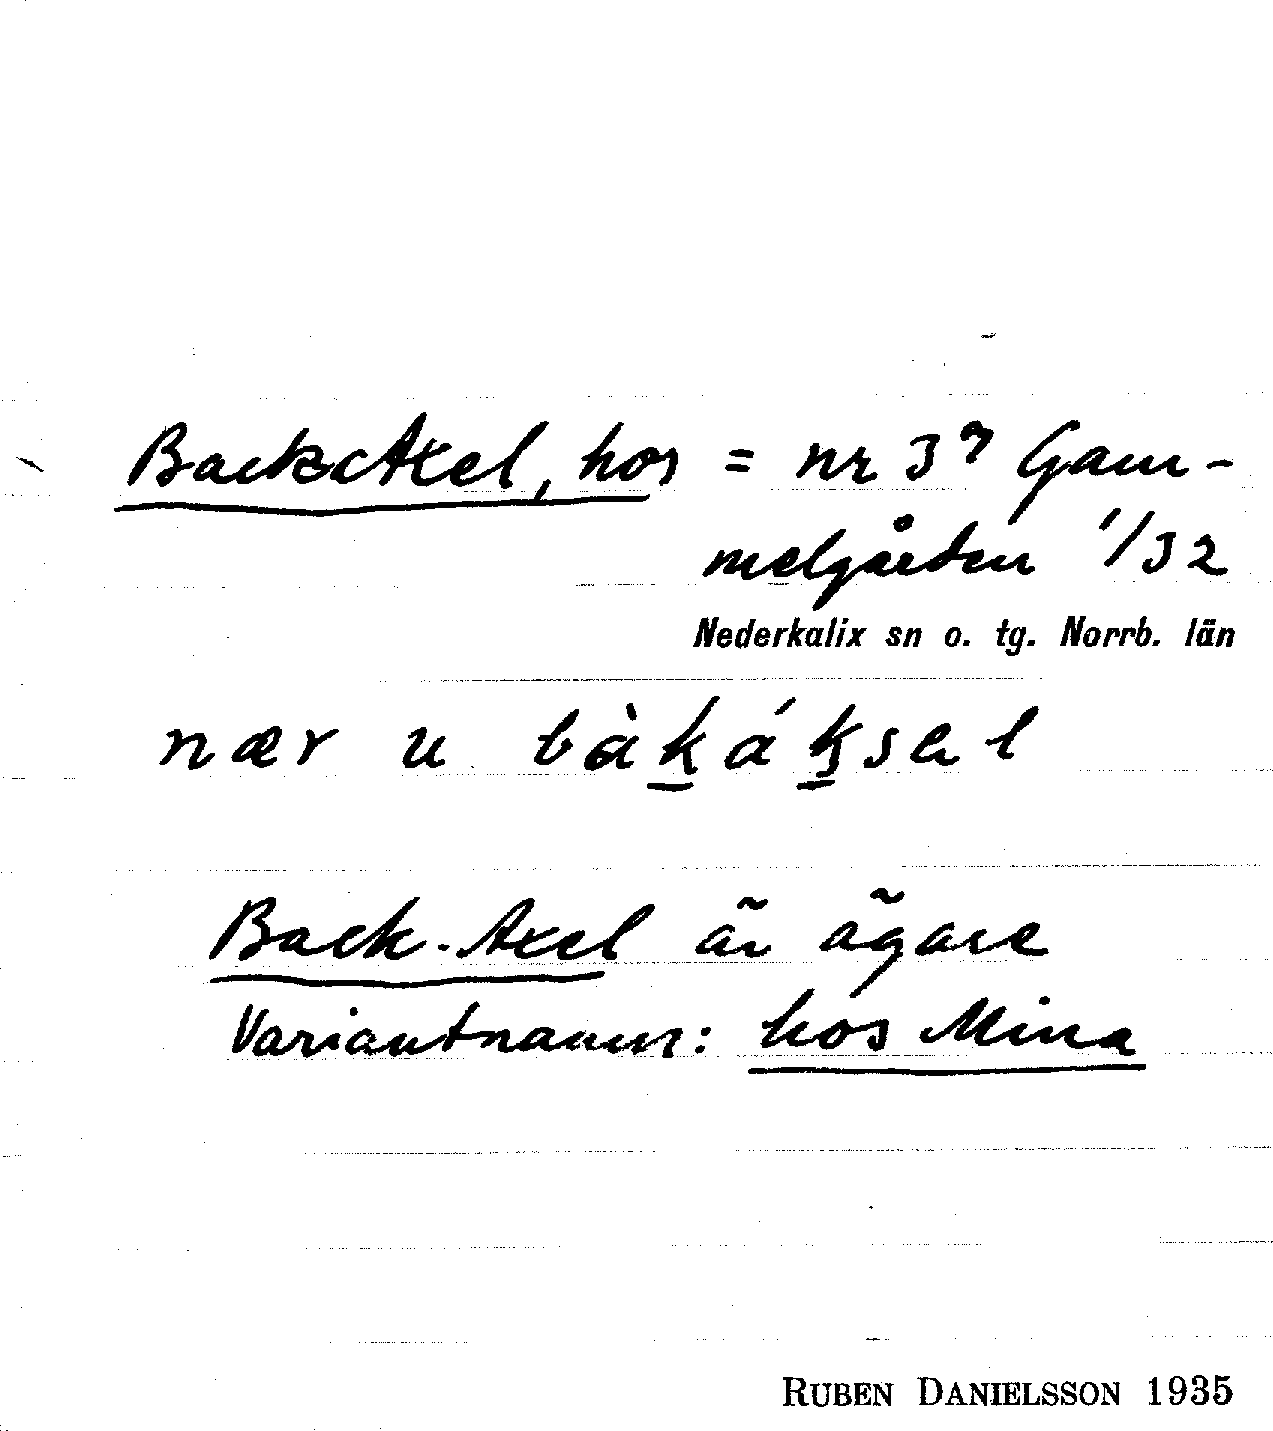 BackAxel, hos = nr 3⁷ Gam-
melgården 1/32
Nederkalix sn o. tg. Norrb. län
nær u bàk̲ák̲səl
Back-Axel är ägare
Variantnamn: hos Mina
RUBEN DANIELSSON 1935